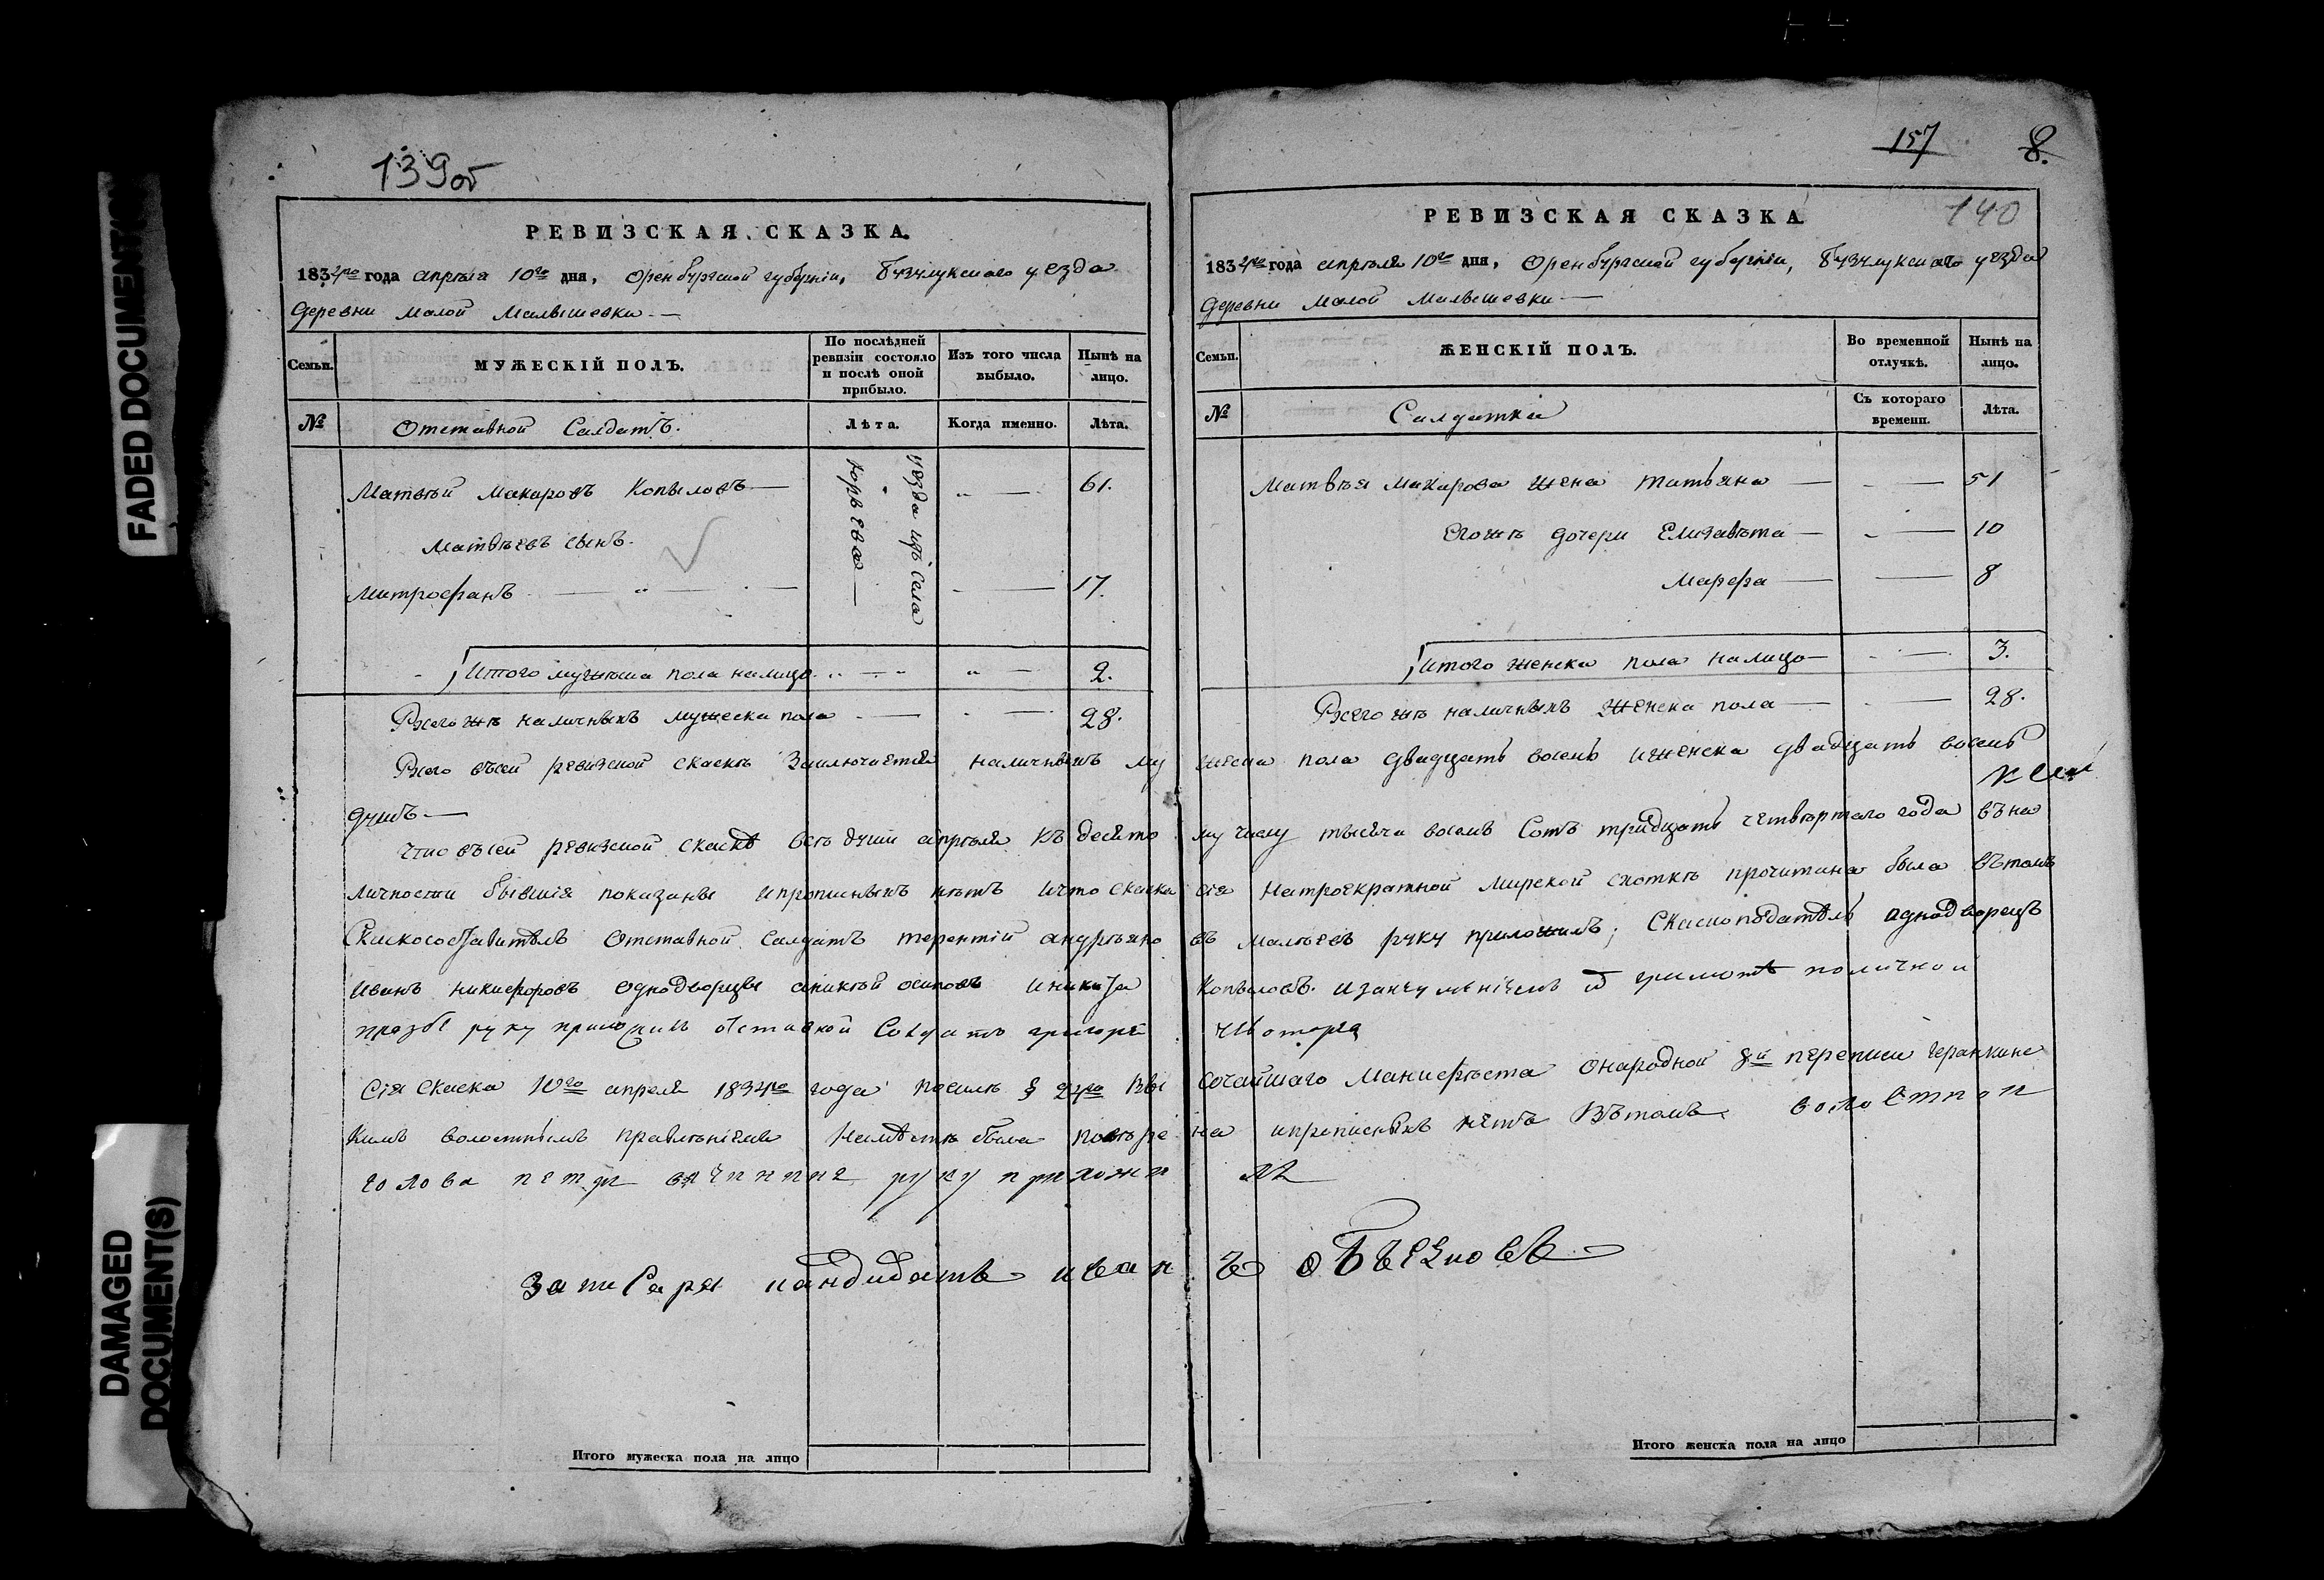 FADED DOCUMENT(S)
DAMAGED
DOCUMENT(S)
139об
РЕВИЗСКАЯ СКАЗКА.
1834го года апрѣля 10го дня, Оренбургской губерніи, Бузулукскаго уезда
деревни малой Малышевки
Семьи.
МУЖЕСКІЙ ПОЛЪ.
По послѣдней ревизіи состояло и послѣ оной прибыло.
Изъ того числа выбыло.
Нынѣ на лицо.
№
Отставной Салдатъ.
Лѣта.
Когда именно.
Лѣта.
Матвѣй Макаровъ Копыловъ 61.
Матвѣевъ сынъ.
Митрофанъ 17.
уезда изъ Села
Юрьева
Итого мужеска пола налицо 2.
Всего жъ наличныхъ мужеска пола 28.
157
8.
140
РЕВИЗСКАЯ СКАЗКА
1834го года апрѣля 10го дня, Оренбургской губерніи, Бузулукскаго уезда
деревни малой Малышевки
Семьи.
ЖЕНСКІЙ ПОЛЪ.
Во временной отлучкѣ.
Нынѣ на лицо.
№
Салдатка
Съ котораго времени.
Лѣта.
Матвѣя Макарова жена татьяна 51
Егожъ дочери Елизавѣта 10
Марфа 8
Итого женска пола налицо 3.
Всего жъ наличныхъ женска пола 28.
Всего въсей ревизской скаскѣ Заключается наличныхъ мужеска пола двадцать восемь иженска двадцать восемь
душъ
что въсей ревизской скаскѣ всѣ души апрѣля къ десятому числу тысяча восемь Сотъ тридцать четвертаго года въна
личности бывшія показаны ипрописныхъ нѣтъ ичто скаска сія натроекратной мирской сходкѣ прочитана была вътомъ
Скаскосоставитель Отставной Салдатъ терентій андреяновъ малѣевъ руку приложилъ; Скаскоподатель аднодворецъ
Иванъ никифоровъ Однодворцы аникѣй осиповъ иникита Копыловъ. изанеуменіемъ грамотѣ поличной
прозбе руку приложилъ отставной Солдатъ григорей
Сія Скаска 10го апреля 1834го года посилѣ § Высочайшаго Манифѣста Онародной 8й переписи геранкинс
кимъ волостнымъ правлѣніемъ Наместѣ была повѣрена ипрописныхъ нѣтъ Вътомъ волостной
голова петръ руку приложилъ
За писаря кандидатъ иванъ объезновъ
Итого мужеска пола на лицо
Итого женска пола на лицо